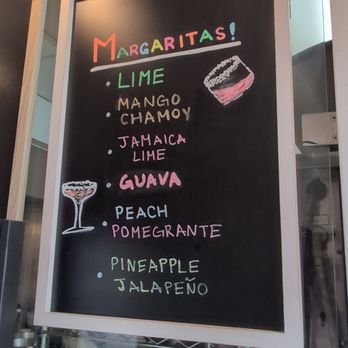 MARGARITAS!
• LIME
• MANGO
CHAMOY
• JAMAICA
LIME
• GUAVA
• PEACH
POMEGRANTE
• PINEAPPLE
JALAPEÑO